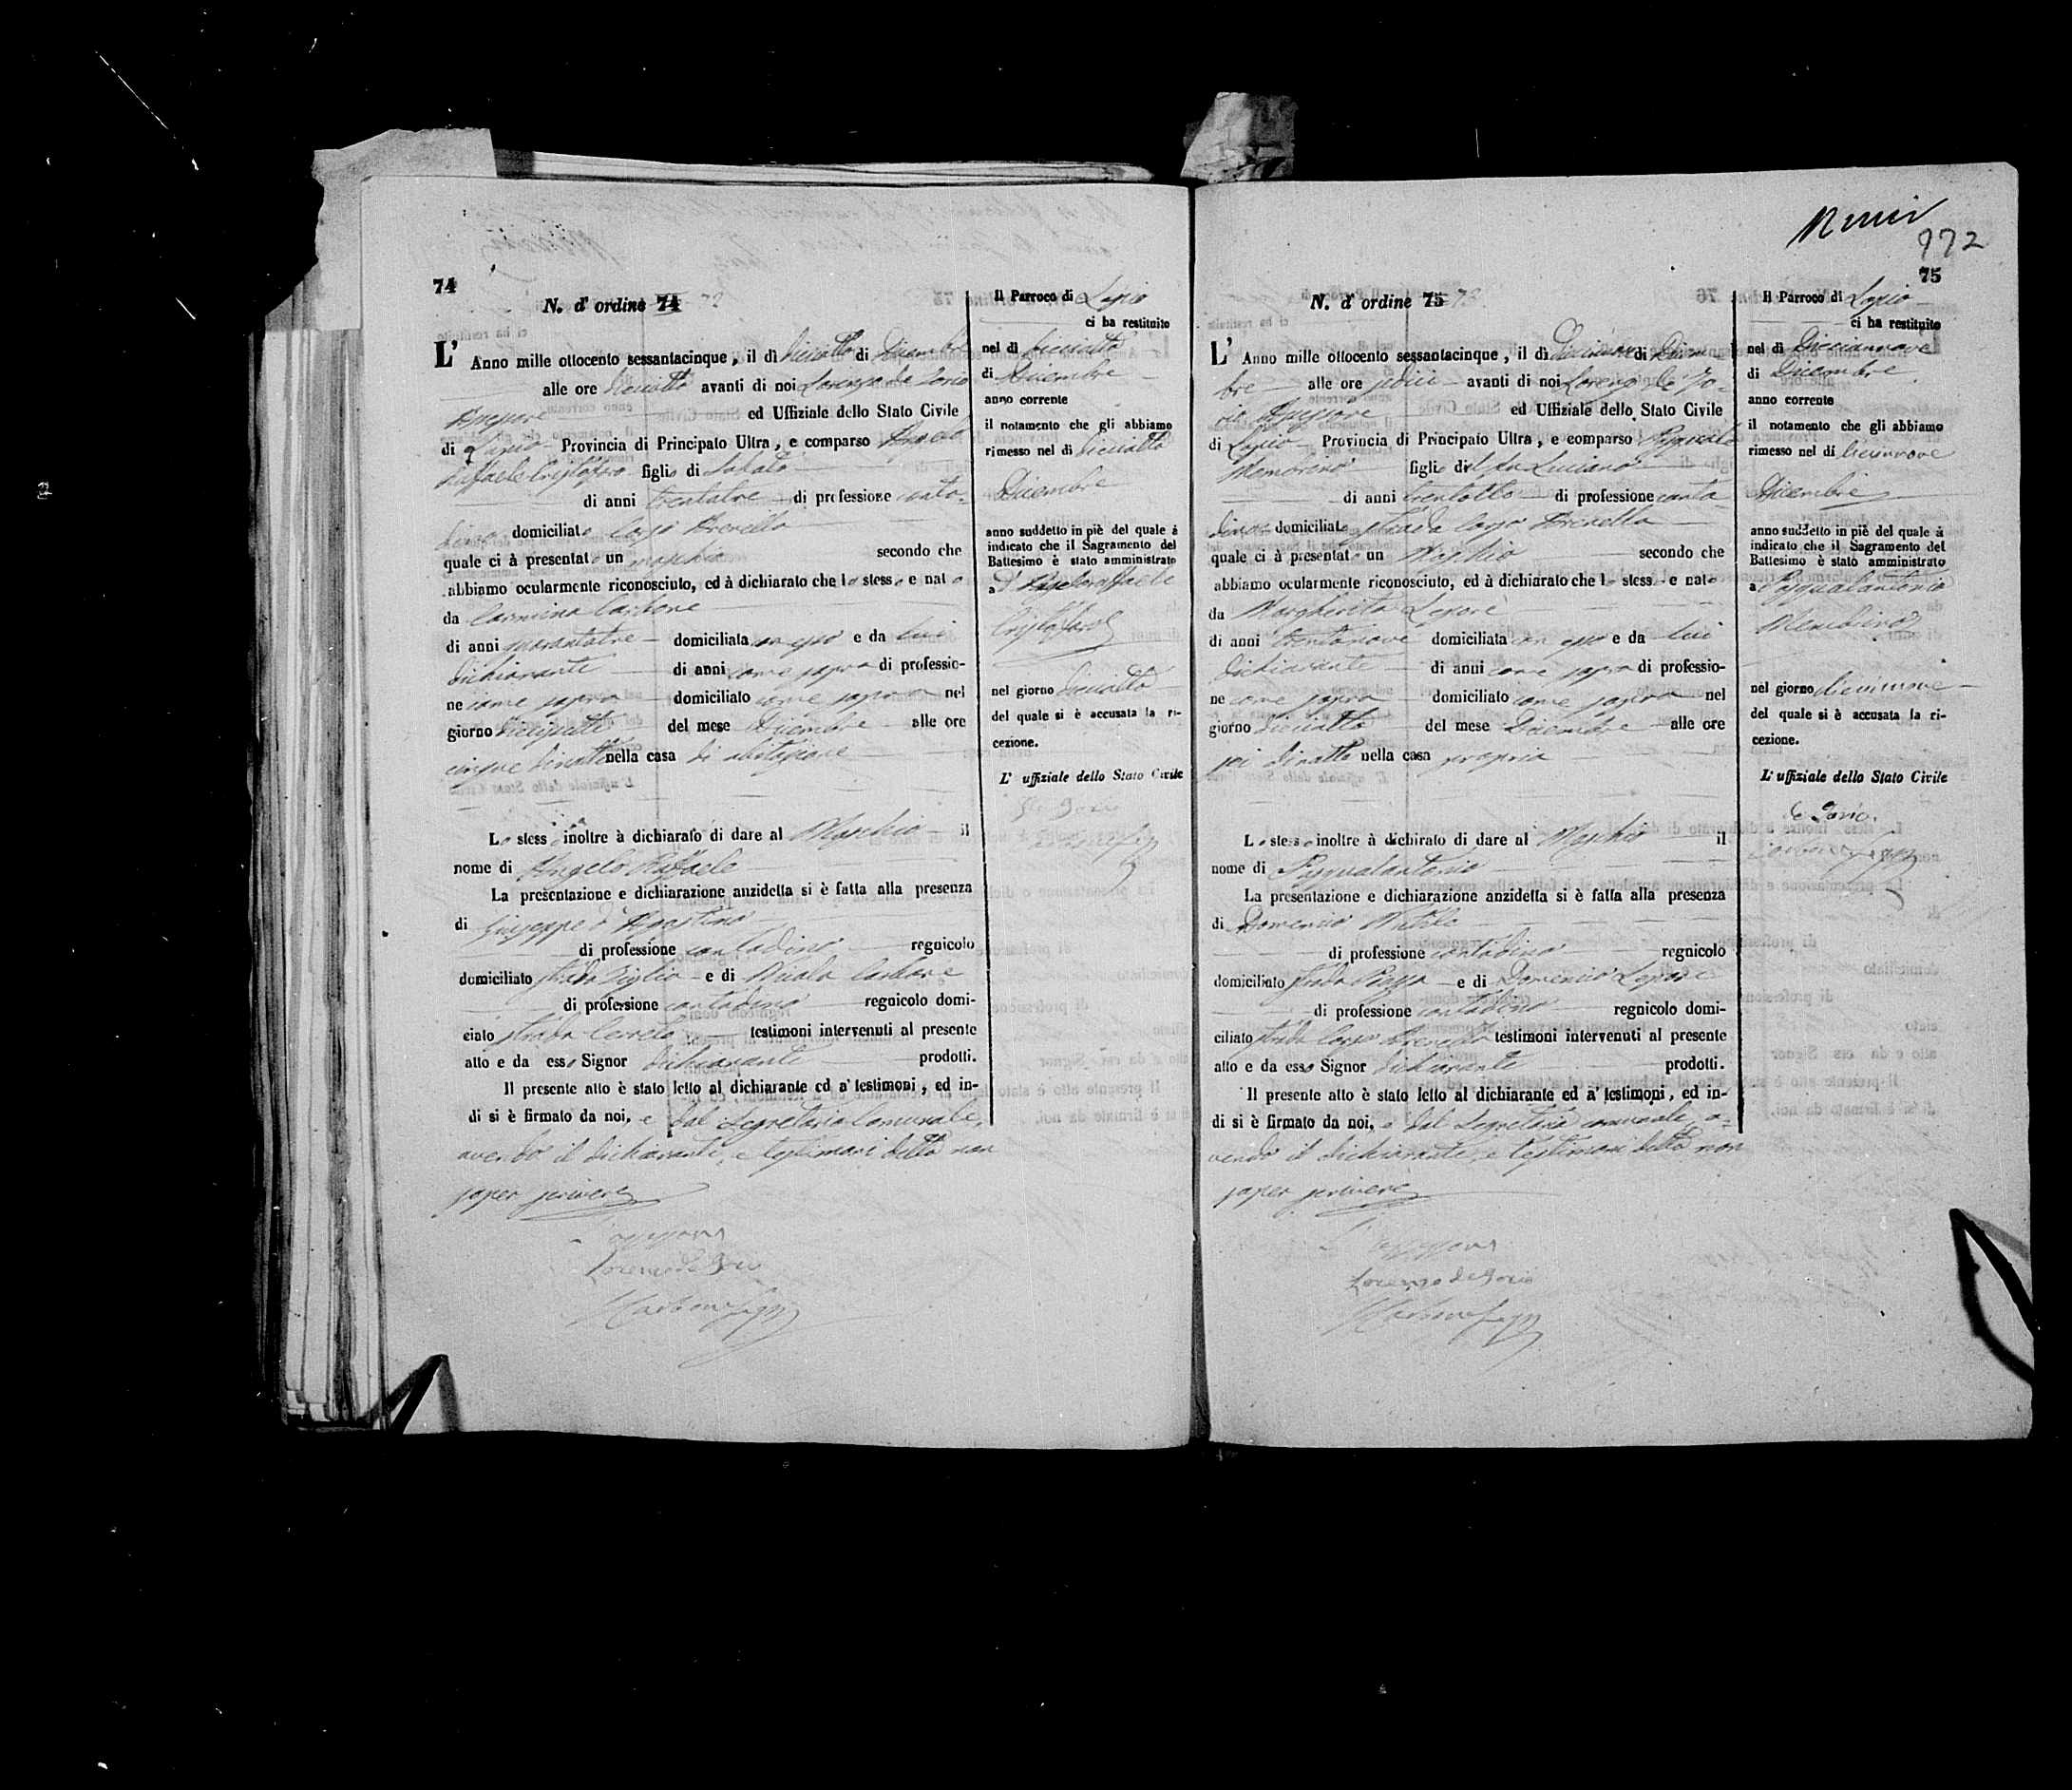 74
N. d' ordine 74 72
L' Anno mille ottocento sessantacinque, il dì diciotto di Dicembre
alle ore diciotto avanti di noi Lorenzo de Iorio
Assessore ed Uffiziale dello Stato Civile
di Lapio Provincia di Principato Ultra, e comparso Angelo
Raffaele Cristofaro figlio di Sabato
di anni trentatre di professione conta-
dino domiciliato Largo Brevetto
quale ci à presentato un maschio secondo che
abbiamo ocularmente riconosciuto, ed à dichiarato che lo stesso e nato
da Carmina Carbone
di anni quarantatre domiciliata con esso e da lui
dichiarante di anni come sopra di professio-
ne come sopra domiciliato come sopra nel
giorno diciasette del mese Dicembre alle ore
cinque di notte nella casa di abitazione
Lo stesso inoltre à dichiarato di dare al Maschio il
nome di Angelo Raffaele
La presentazione e dichiarazione anzidetta si è fatta alla presenza
di Giuseppe d'Agostino
di professione contadino regnicolo
domiciliato strada Siglia e di Nicola Carbone
di professione contadino regnicolo domi-
ciato strada Cerreto testimoni intervenuti al presente
atto e da esso Signor dichiarante prodotti.
Il presente atto è stato letto al dichiarante ed a' testimoni, ed in-
di si è firmato da noi, e dal Segretario Comunale,
avendo il dichiarante, e testimoni detto non
saper scrivere
L'assessore
Lorenzo de Iorio
Carbone Seg
Il Parroco di Lapio
ci ha restituito
nel dì diciotto
di Dicembre
anno corrente
il notamento che gli abbiamo
rimesso nel dì diciotto
Dicembre
anno suddetto in piè del quale à
indicato che il Sagramento del
Battesimo è stato amministrato
a Angelo Raffaele
Cristofaro
nel giorno diciotto
del quale si è accusata la ri-
cezione.
L' uffiziale dello Stato Civile
de Iorio
772
75
N. d' ordine 75 73
L' Anno mille ottocento sessantacinque, il dì diecinove di Dicem
bre alle ore sedici avanti di noi Lorenzo de Io-
rio Assessore ed Uffiziale dello Stato Civile
di Lapio Provincia di Principato Ultra, e comparso Pasquale
figlio del fu Luciano
di anni trentotto di professione conta
dino domiciliato strada Largo Brevetto
quale ci à presentato un Maschio secondo che
abbiamo ocularmente riconosciuto, ed à dichiarato che lo stesso e nato
da Margherita Lepore
di anni trentanove domiciliata con esso e da lui
dichiarante di anni come sopra di professio-
ne come sopra domiciliato come sopra nel
giorno diciotto del mese Dicembre alle ore
sei di notte nella casa propria
Lo stesso inoltre à dichirato di dare al Maschio il
nome di Pasqualantonio
La presentazione e dichiarazione anzidetta si è fatta alla presenza
di Domenico
di professione contadino regnicolo
domiciliato strada Piazza e di Domenico Lepore
di professione contadino regnicolo domi-
ciliato strada Largo Brevetto testimoni intervenuti al presente
atto e da esso Signor dichiarante prodotti.
Il presente atto è stato letto al dichiarante ed a' testimoni, ed in-
di si è firmato da noi, e dal Segretario comunale, a-
vendo il dichiarante, e testimoni detto non
saper scrivere
L'assessore
Lorenzo de Iorio
Carbone Seg
Il Parroco di Lapio
ci ha restituito
nel dì Diecinnove
di Dicembre
anno corrente
il notamento che gli abbiamo
rimesso nel dì diecinnove
Dicembre
anno suddetto in piè del quale à
indicato che il Sagramento del
Battesimo è stato amministrato
a Pasqualantonio
nel giorno diecinnove
del quale si è accusata la ri-
cezione.
L' uffiziale dello Stato Civile
de Iorio
Carbone Seg